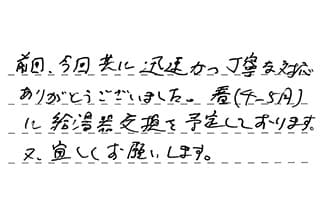 前回、今回共に迅速かつ丁寧な対応
ありがとうございました。春(4-5月)
に給湯器交換を予定しております。
又、宜しくお願いします。